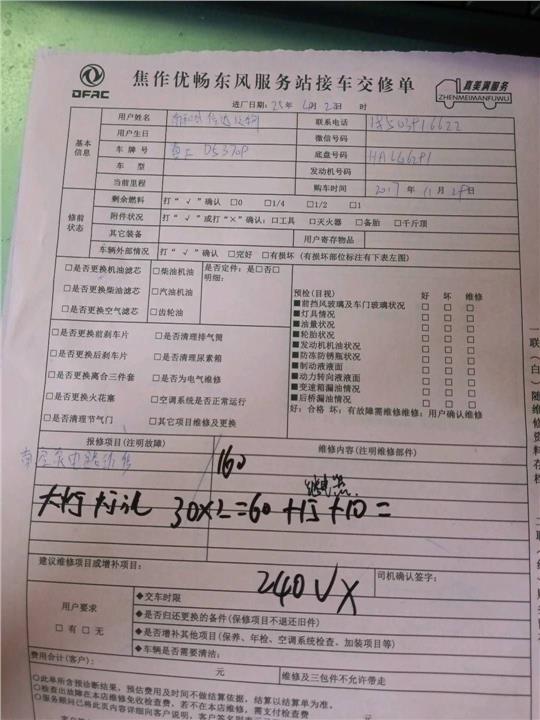 DFAC
焦作优畅东风服务站接车交修单
真美满服务
ZHENMEIMANFUWU
进厂日期：25年 月2日 时
基本信息
用户姓名
联系电话
用户生日
微信号码
车牌号 D5370P
底盘号码
车型
发动机号码
当前里程
购车时间 2017年11月29日
修前状态
剩余燃料 打“√”确认 □0 □1/4 □1/2 □1
附件状况 打“√”或打“×”确认：□工具 □灭火器 □备胎 □千斤顶
其它装备
用户寄存物品
车辆外部情况 打“√”确认 □完好 □有损坏（有损坏部位标注有下表左图）
□是否更换机油滤芯 □柴油机油
□是否更换柴油滤芯 □汽油机油
□是否更换空气滤芯 □齿轮油
是否定件：是□否□
明细：
□是否更换前刹车片 □是否清理排气筒
□是否更换后刹车片 □是否清理尿素箱
□是否更换离合三件套 □是否为电气维修
□是否更换火花塞 □空调系统是否正常运行
□是否清理节气门 □其它项目维修及更换
预检（目视） 好 坏 维修
■前挡风玻璃及车门玻璃状况 □ □ □
■灯具情况 □ □ □
■油量状况 □ □ □
■轮胎状况 □ □ □
■发动机机油状况 □ □ □
■防冻防锈瓶状况 □ □ □
■制动液液面 □ □ □
■动力转向液液面 □ □ □
■变速箱漏油情况 □ □ □
■后桥漏油情况 □ □ □
好：合格 坏：有故障需维修维修：用户确认维修
报修项目（注明故障）
维修内容（注明维修部件）
160
继电器
大灯灯泡 30×2=60 +15 +10=
建议维修项目或增补项目：
司机确认签字：
240√×
用户要求
□有□无
◆交车时限
◆是否归还更换的备件（保修项目不退还旧件）
◆是否增补其他项目（保养、年检、空调系统检查、加装项目等）
◆车辆是否需要清洁：
费用合计（客户）： 元
维修及三包件不允许带走
○此单所含预诊断结果，预估费用及时间不做结算依据，结算以结算单为准。
○检查出故障在本店维修免收检查费，若不在本店维修，需支付检查费 元
○服务顾问已将此页内容详细向客户说明，客户签名